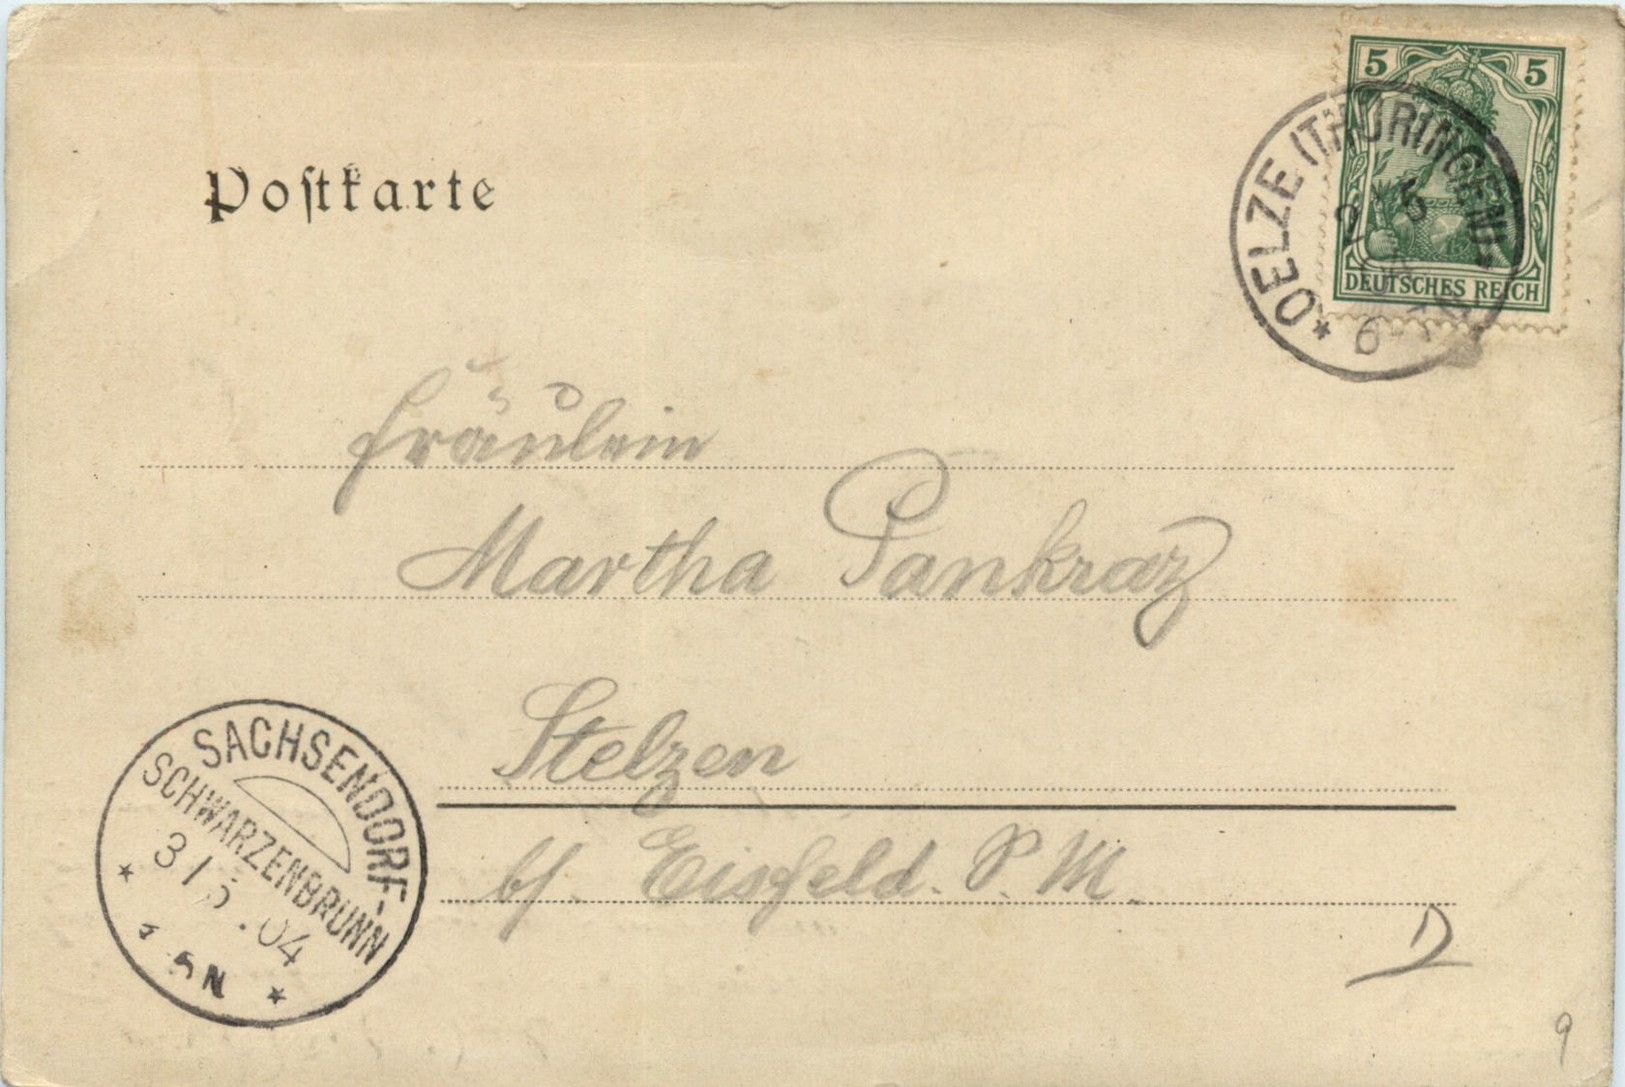 5 5
DEUTSCHES REICH
* OELZE (THÜRINGEN)
2 5
6-7
Postkarte
Fräulein
Martha Pankraz
Stelzen
b/. Eisfeld. S. M.
SACHSENDORF-
SCHWARZENBRUNN
3/5.04
5 N
D
9